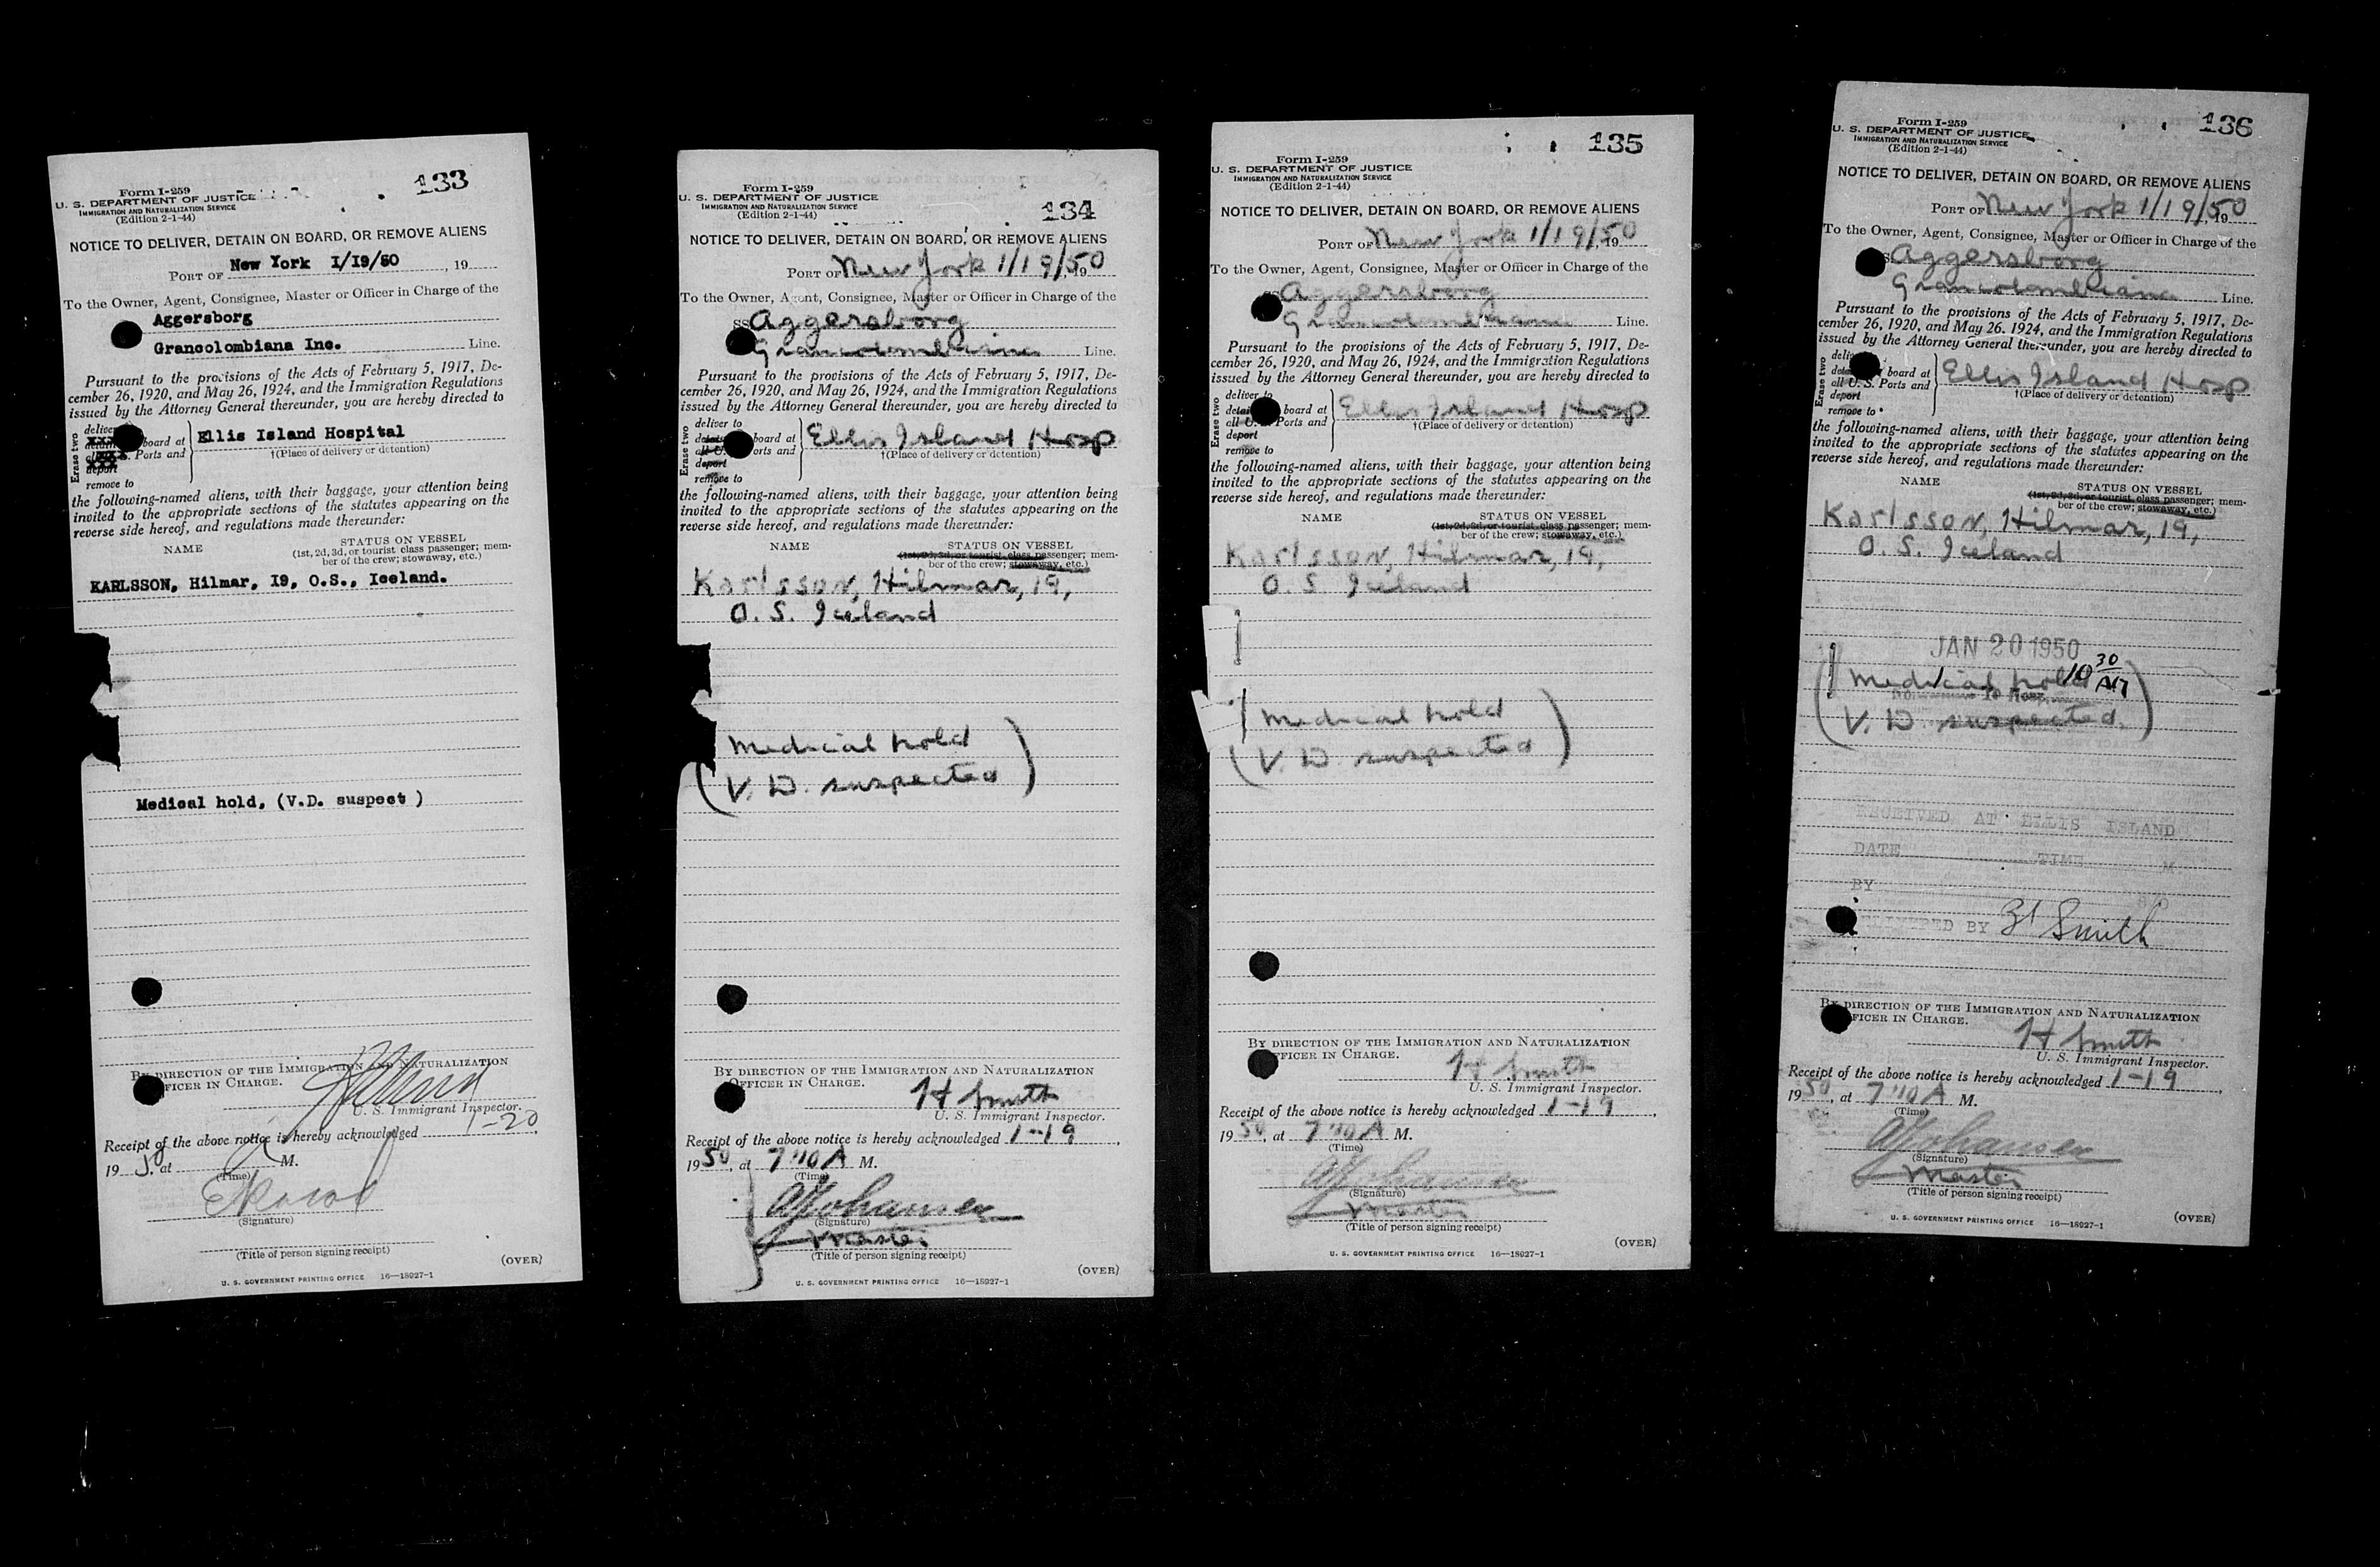 133
Form I-259
U. S. DEPARTMENT OF JUSTICE
IMMIGRATION AND NATURALIZATION SERVICE
(Edition 2-1-44)
NOTICE TO DELIVER, DETAIN ON BOARD, OR REMOVE ALIENS
PORT OF New York 1/19/50, 19
To the Owner, Agent, Consignee, Master or Officer in Charge of the
Aggersborg
Grancolombiana Inc. Line.
Pursuant to the provisions of the Acts of February 5, 1917, De-
cember 26, 1920, and May 26, 1924, and the Immigration Regulations
issued by the Attorney General thereunder, you are hereby directed to
Erase two
deliver
board at
Ports and
deport
remove to
Ellis Island Hospital
†(Place of delivery or detention)
the following-named aliens, with their baggage, your attention being
invited to the appropriate sections of the statutes appearing on the
reverse side hereof, and regulations made thereunder:
NAME STATUS ON VESSEL
(1st, 2d, 3d, or tourist class passenger; mem-
ber of the crew; stowaway, etc.)
KARLSSON, Hilmar, 19, O.S., Iceland.
Medical hold, (V.D. suspect )
BY DIRECTION OF THE IMMIGRATION AND NATURALIZATION
OFFICER IN CHARGE.
U. S. Immigrant Inspector.
Receipt of the above notice is hereby acknowledged 1-20,
19 5, at M.
(Time)
(Signature)
(Title of person signing receipt)
U. S. GOVERNMENT PRINTING OFFICE 16—18927-1
(OVER)
134
Form I-259
U. S. DEPARTMENT OF JUSTICE
IMMIGRATION AND NATURALIZATION SERVICE
(Edition 2-1-44)
NOTICE TO DELIVER, DETAIN ON BOARD, OR REMOVE ALIENS
PORT OF New York 1/19/50, 19
To the Owner, Agent, Consignee, Master or Officer in Charge of the
SS Aggersborg
Grancolombiana Line.
Pursuant to the provisions of the Acts of February 5, 1917, De-
cember 26, 1920, and May 26, 1924, and the Immigration Regulations
issued by the Attorney General thereunder, you are hereby directed to
Erase two
deliver to
board at
all U. orts and
deport
remove to
Ellis Island Hosp
†(Place of delivery or detention)
the following-named aliens, with their baggage, your attention being
invited to the appropriate sections of the statutes appearing on the
reverse side hereof, and regulations made thereunder:
NAME STATUS ON VESSEL
(1st, 2d, 3d, or tourist class passenger; mem-
ber of the crew; stowaway, etc.)
Karlsson, Hilmar, 19,
O. S. Iceland
Medical hold
(V. D. suspected)
BY DIRECTION OF THE IMMIGRATION AND NATURALIZATION
OFFICER IN CHARGE.
H Smith
U. S. Immigrant Inspector.
Receipt of the above notice is hereby acknowledged 1-19,
19 50, at 7:10 A M.
(Time)
A Johansen
(Signature)
Master
(Title of person signing receipt)
U. S. GOVERNMENT PRINTING OFFICE 16—18927-1
(OVER)
135
Form I-259
U. S. DEPARTMENT OF JUSTICE
IMMIGRATION AND NATURALIZATION SERVICE
(Edition 2-1-44)
NOTICE TO DELIVER, DETAIN ON BOARD, OR REMOVE ALIENS
PORT OF New York 1/19/50, 19
To the Owner, Agent, Consignee, Master or Officer in Charge of the
Aggersborg
Grancolombiana Line.
Pursuant to the provisions of the Acts of February 5, 1917, De-
cember 26, 1920, and May 26, 1924, and the Immigration Regulations
issued by the Attorney General thereunder, you are hereby directed to
Erase two
deliver to
board at
all U. Ports and
deport
remove to
Ellis Island Hosp
†(Place of delivery or detention)
the following-named aliens, with their baggage, your attention being
invited to the appropriate sections of the statutes appearing on the
reverse side hereof, and regulations made thereunder:
NAME STATUS ON VESSEL
(1st, 2d, 3d, or tourist class passenger; mem-
ber of the crew; stowaway, etc.)
Karlsson, Hilmar, 19,
O. S. Iceland
Medical hold
(V. D. suspected)
BY DIRECTION OF THE IMMIGRATION AND NATURALIZATION
OFFICER IN CHARGE.
H Smith
U. S. Immigrant Inspector.
Receipt of the above notice is hereby acknowledged 1-19,
19 50, at 7:10 A M.
(Time)
A Johansen
(Signature)
Master
(Title of person signing receipt)
U. S. GOVERNMENT PRINTING OFFICE 16—18927-1
(OVER)
136
Form I-259
U. S. DEPARTMENT OF JUSTICE
IMMIGRATION AND NATURALIZATION SERVICE
(Edition 2-1-44)
NOTICE TO DELIVER, DETAIN ON BOARD, OR REMOVE ALIENS
PORT OF New York 1/19/50, 19
To the Owner, Agent, Consignee, Master or Officer in Charge of the
Aggersborg
Grancolombiana Line.
Pursuant to the provisions of the Acts of February 5, 1917, De-
cember 26, 1920, and May 26, 1924, and the Immigration Regulations
issued by the Attorney General thereunder, you are hereby directed to
Erase two
board at
all U. S. Ports and
deport
remove to
Ellis Island Hosp
†(Place of delivery or detention)
the following-named aliens, with their baggage, your attention being
invited to the appropriate sections of the statutes appearing on the
reverse side hereof, and regulations made thereunder:
NAME STATUS ON VESSEL
(1st, 2d, 3d, or tourist class passenger; mem-
ber of the crew; stowaway, etc.)
Karlsson, Hilmar, 19,
O. S. Iceland
JAN 20 1950
10 30 AM
Medical hold
(V. D. suspected)
RECEIVED AT ELLIS ISLAND
DATE TIME M.
BY
DELIVERED BY H Smith
BY DIRECTION OF THE IMMIGRATION AND NATURALIZATION
OFFICER IN CHARGE.
H Smith
U. S. Immigrant Inspector.
Receipt of the above notice is hereby acknowledged 1-19,
19 50, at 7:10 A M.
(Time)
A Johansen
(Signature)
Master
(Title of person signing receipt)
U. S. GOVERNMENT PRINTING OFFICE 16—18927-1
(OVER)